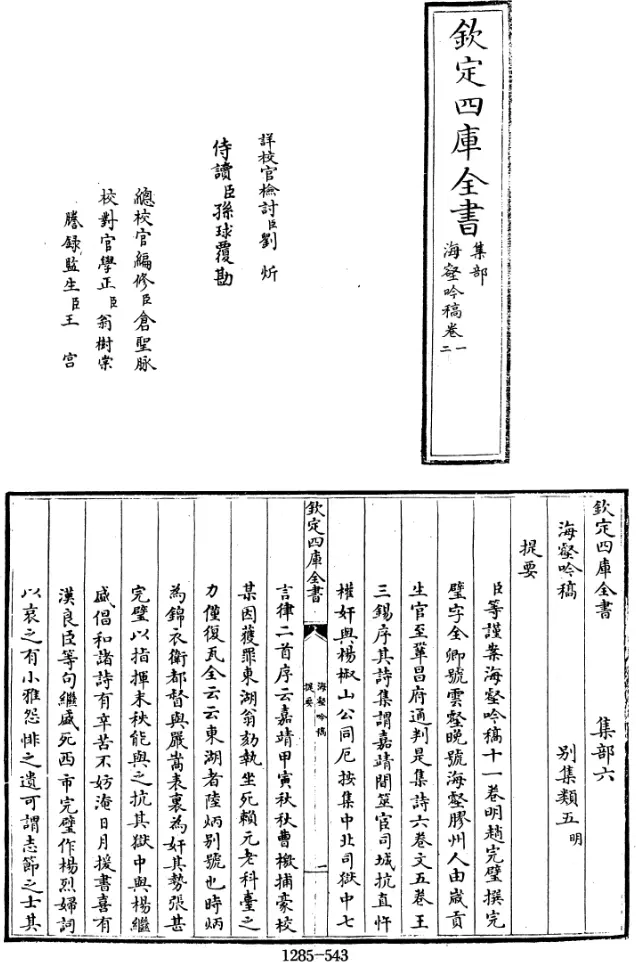 欽定四庫全書
集部
海壑吟稿卷一
二
詳校官檢討臣劉炘
侍讀臣孫球覆勘
總校官編修臣倉聖脉
校對官學正臣翁樹棠
謄錄監生臣王宫
欽定四庫全書
集部六
海壑吟稿
别集類五明
提要
臣等謹案海壑吟稿十一卷明趙完璧撰完
璧字全卿號雲壑晚號海壑膠州人由歲貢
生官至鞏昌府通判是集詩六卷文五卷王
三錫序其詩集謂嘉靖間筮官司城抗直忤
權奸與楊椒山公同厄按集中北司獄中七
欽定四庫全書
海壑吟稿
提要
一
言律二首序云嘉靖甲寅秋秋曹檄捕豪校
某因獲罪東湖翁劾執坐死賴元老科臺之
力僅復瓦全云云東湖者陸炳别號也時炳
為錦衣衛都督與嚴嵩表裏為奸其勢張甚
完璧以指揮末秩能與之抗其獄中與楊繼
盛倡和諸詩有辛苦不妨淹日月援書喜有
漢良臣等句繼盛死西市完璧作楊烈婦詞
以哀之有小雅怨悱之遺可謂志節之士其
1285-543